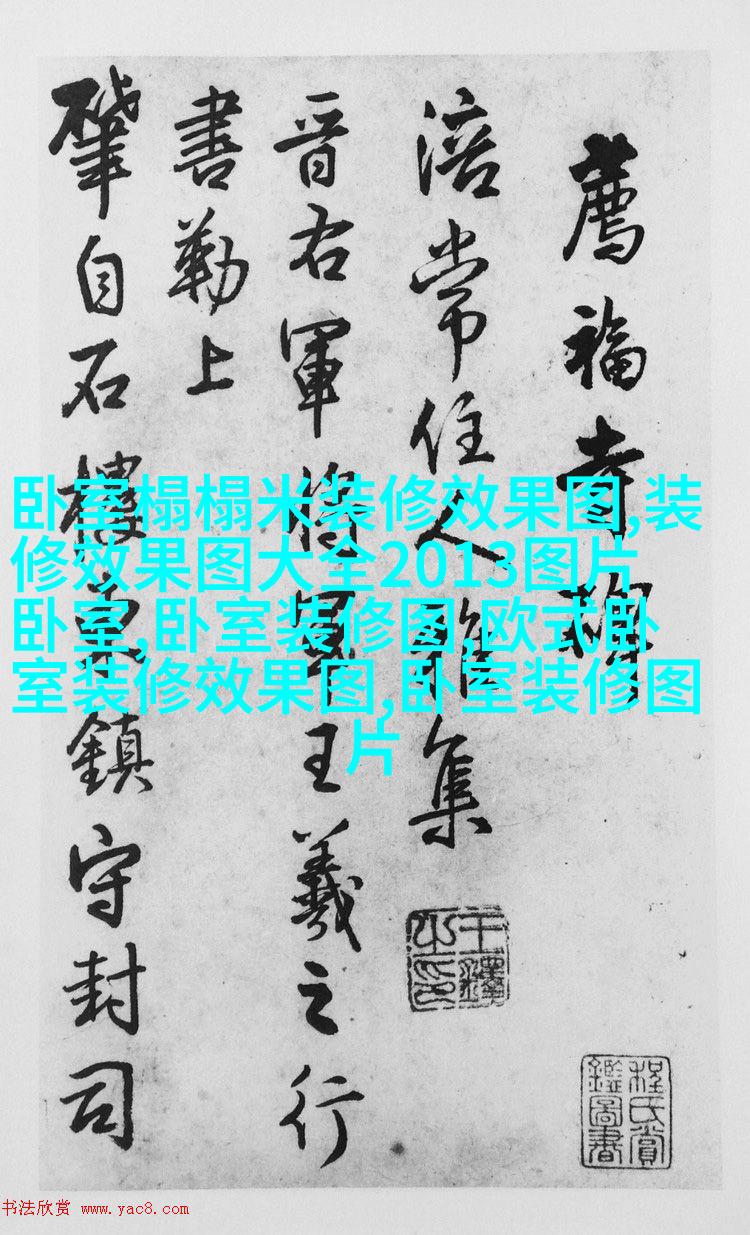 薦福寺
涪常住人集
晉右軍將軍王羲之行
書勒上
肇自石樓鎮守封司
王鐸之印
程氏賞鑑圖書
卧室榻榻米装修效果图,装
修效果图大全2013图片
卧室,卧室装修图,欧式卧
室装修效果图,卧室装修图
片
书法欣赏 www.yac8.com